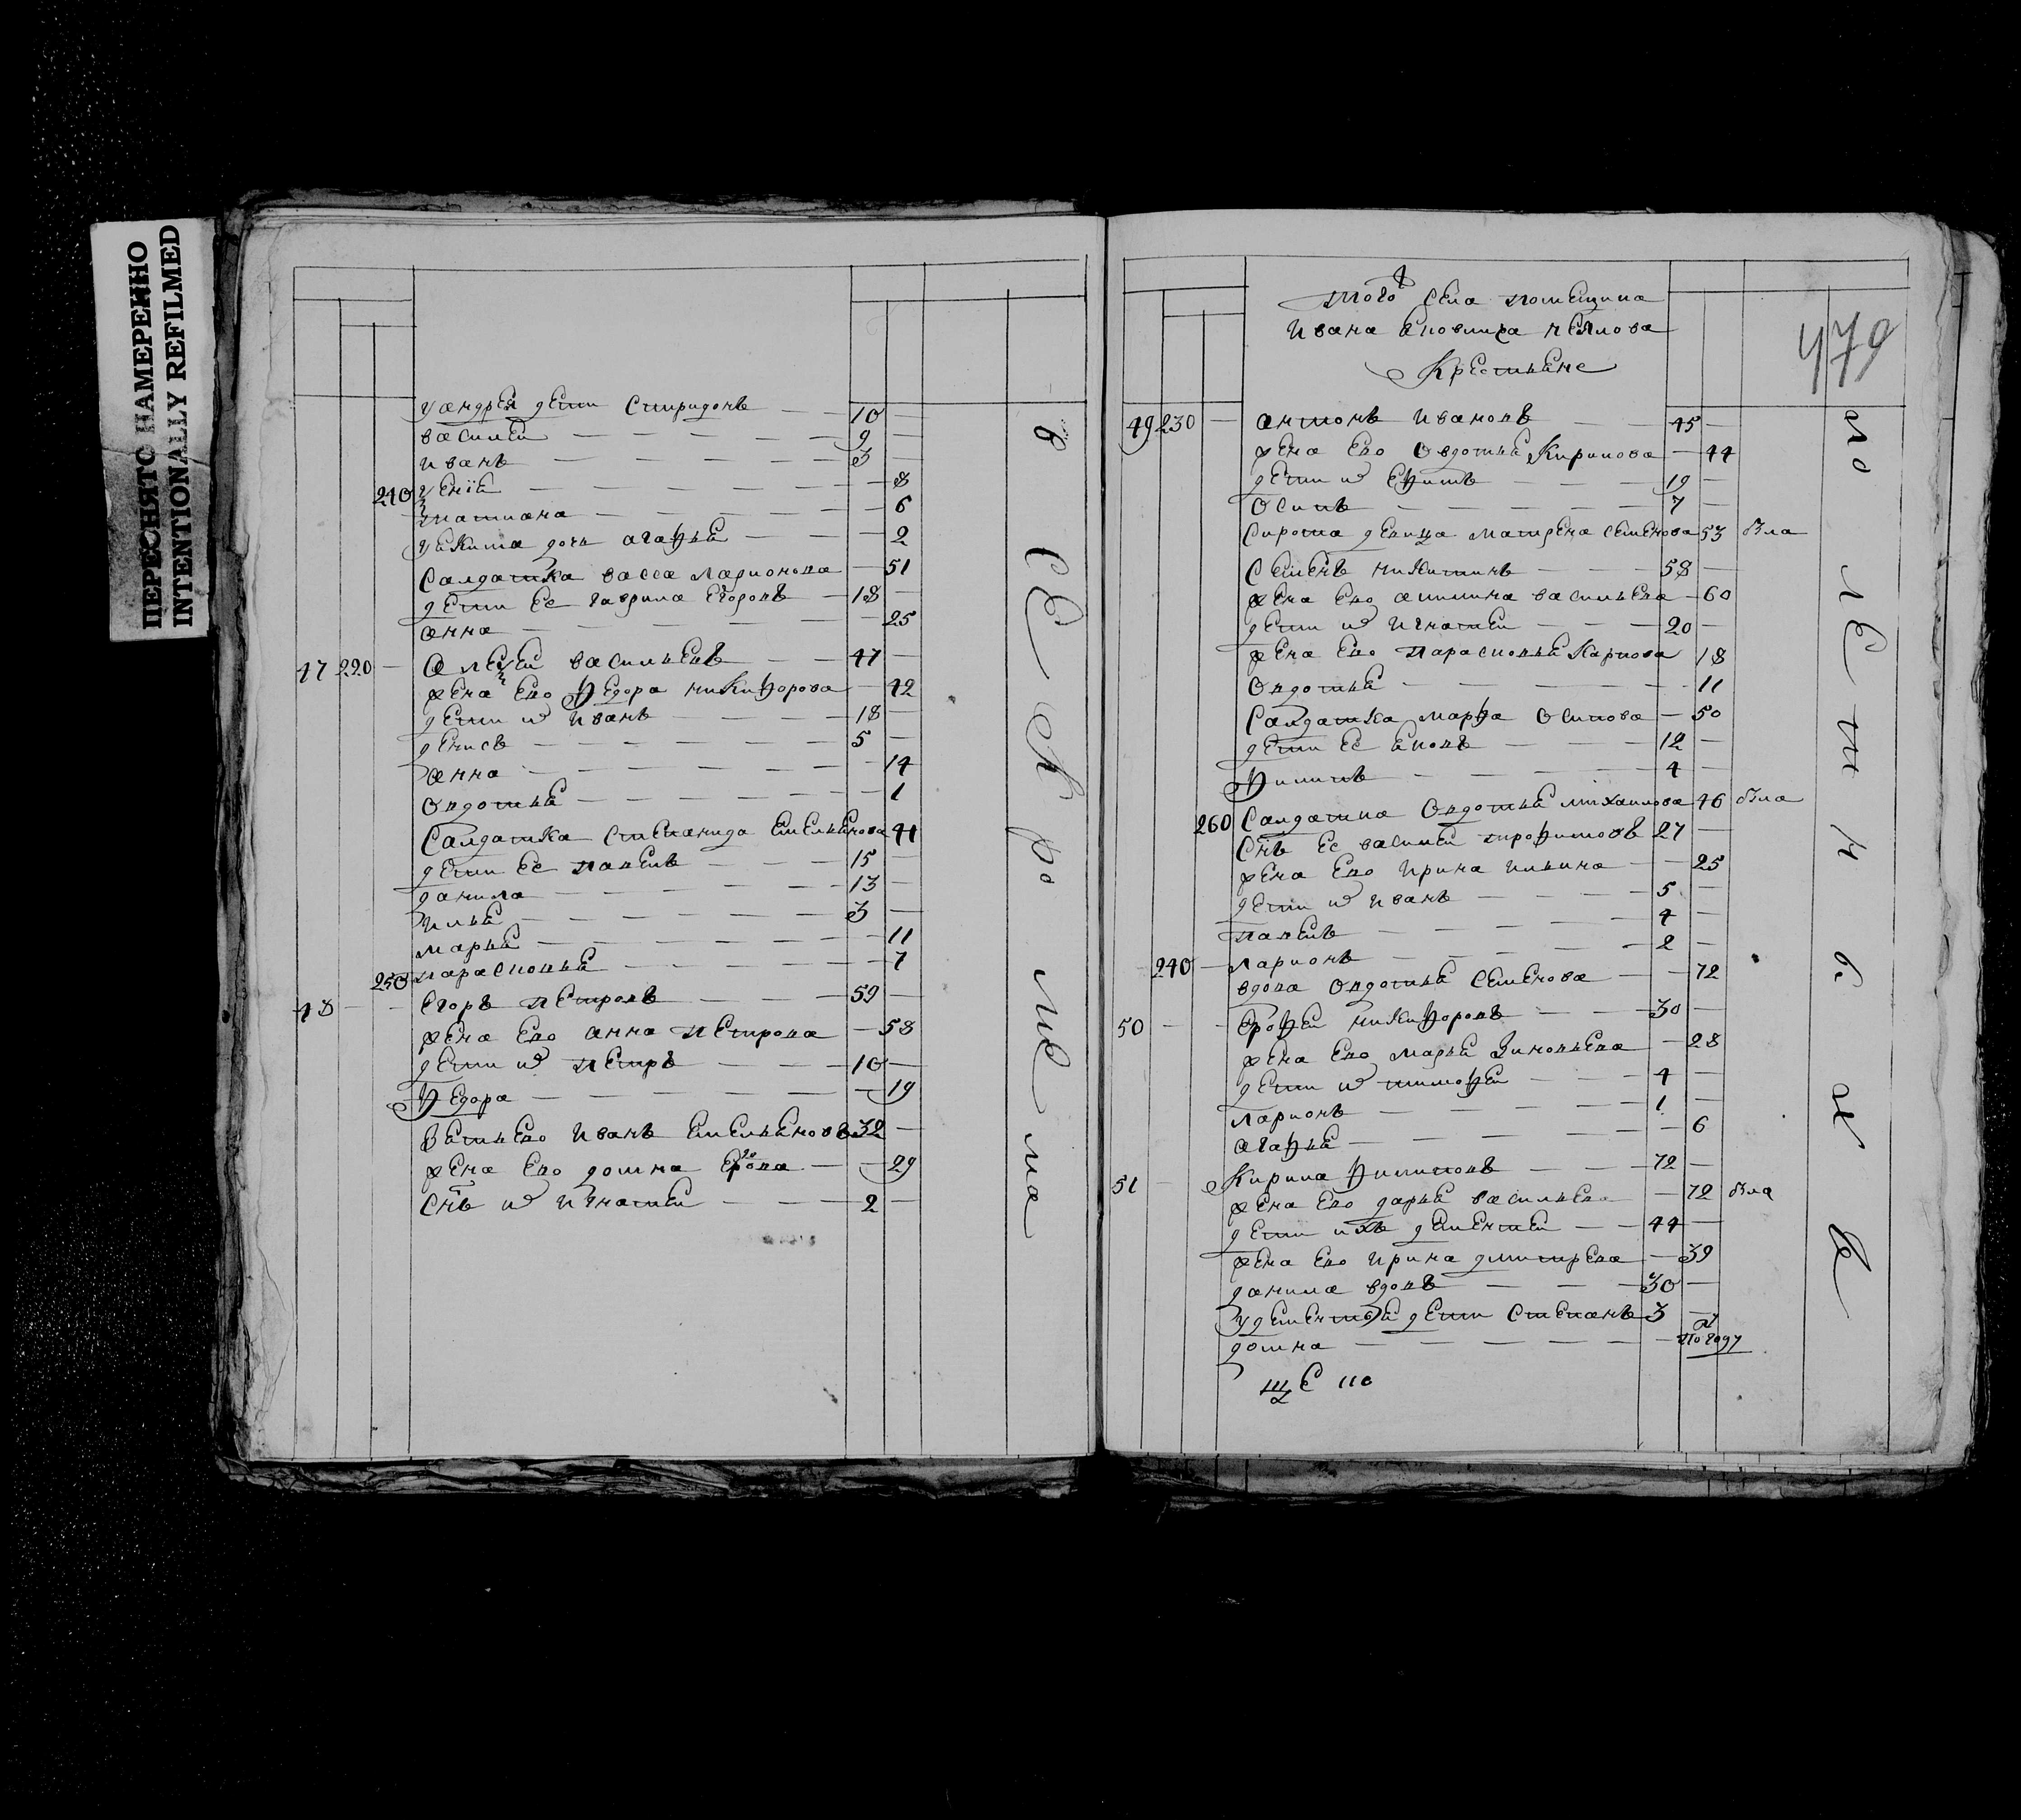 ПЕРЕСНЯТО НАМЕРЕННО
INTENTIONALLY REFILMED
у андрея дети Спиридонъ — 10 —
василей — 9 —
иванъ — 3 —
240 — 8
татиана — 6
у никиты дочь агафья — 2
Салдатка васса ларионова — 51
дети ее гаврила Егоровъ — 18 —
анна — 25
47 220 — алексей васильевъ — 47 —
жена ево федора никифорова — 42
дети их иванъ — 18 —
денисъ — 5 —
анна — 14
овдотья — 1
Салдатка степанида Емельянова 41
дети ее павелъ — 15 —
данила — 13 —
илья — 3 —
марья — 11
250 парасковья — 7
48 — Егоръ петровъ — 59 —
жена ево анна петрова — 58
дети их петръ — 10 —
федора — 19
зять ево иванъ Емельяновъ 32 —
жена ево домна Егорова — 29
Снъ их игнатей — 2 —
того села помещика
ивана
крестьяне
479
49 230 — антонъ ивановъ — 45 —
жена ево овдотья Кирилова — 44
дети их — 19 —
осипъ — 7 —
Сирота девица матрена семенова 53
Семенъ никитинъ — 58 —
жена ево акилина васильева — 60
дети их игнатей — 20 —
жена ево парасковья Карпова 18
овдотья — 11
Салдатка марфа осипова — 50
дети ее яковъ — 12 —
филипъ — 4 —
260 Салдатка овдотья михаилова 46
Снъ ее василей трофимовъ 27 —
жена ево ирина ильина — 25
дети их иванъ — 5 —
павелъ — 4 —
ларионъ — 2 —
240 — вдова овдотья семенова — 72
50 — Ерофей никифоровъ — 30 —
жена ево марья зиновьева — 28
дети их тимофей — 4 —
ларионъ — 1 —
агафья — 6
51 — Кирила филиповъ — 72 —
жена ево дарья васильева — 72
дети ихъ дементей — 44 —
жена ево ирина дмитрева — 39
данила вдовъ — 30 —
у дементья дети степанъ 3 —
домна — по году